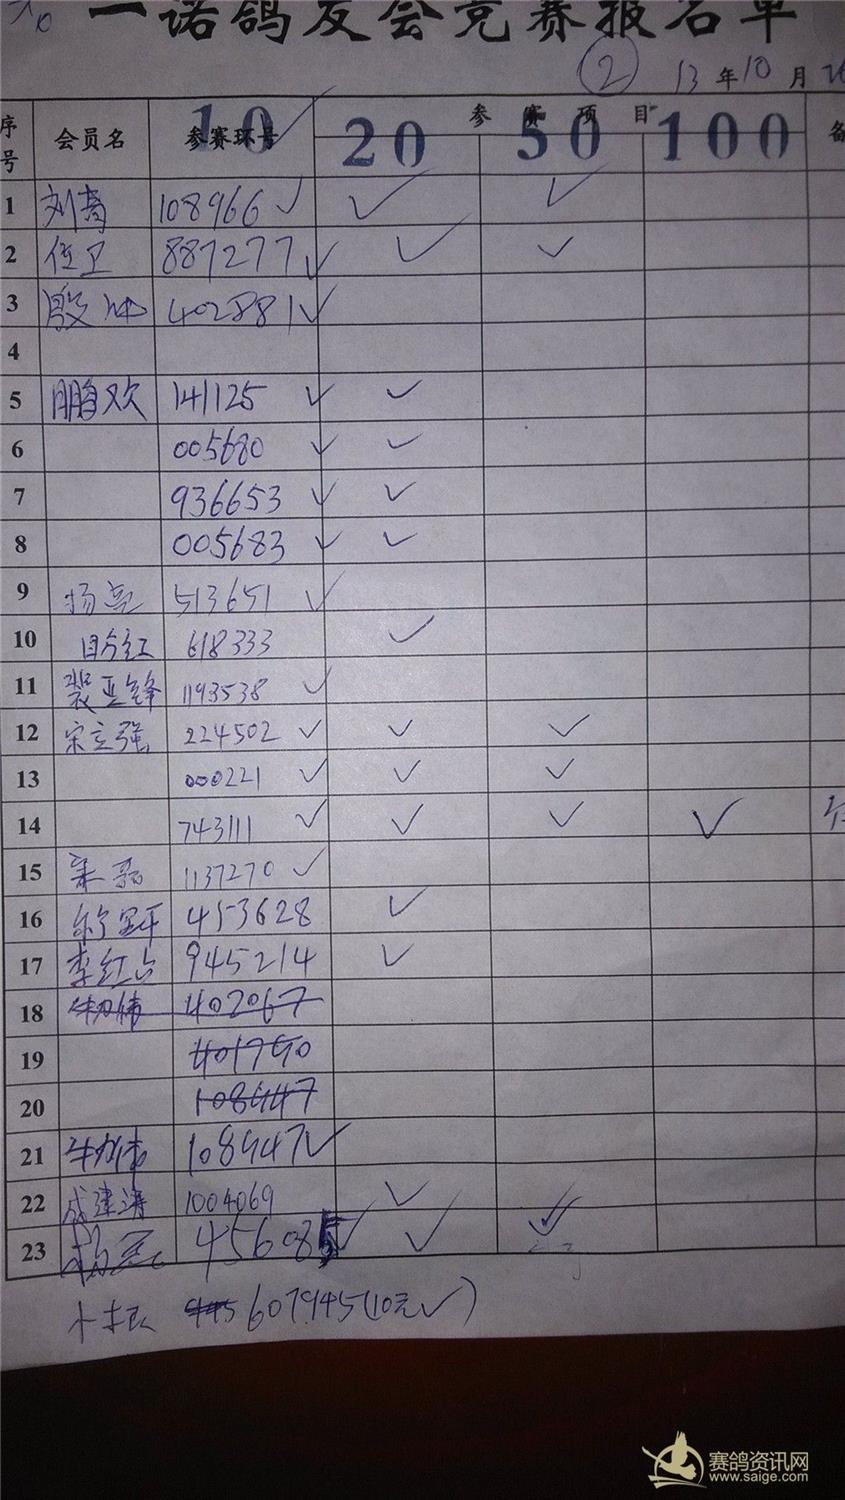 一诺鸽友会竞赛报名单
② 13年10月
序号 会员名 参赛环号 参赛项目 备
10✓ 20 50 100
1 刘 108966 ✓ ✓ ✓
2 任卫 887277 ✓ ✓ ✓
3 殷冲 402881 ✓
4
5 鹏欢 141125 ✓ ✓
6 005680 ✓ ✓
7 936653 ✓ ✓
8 005683 ✓ ✓
9 杨亮 513651 ✓
10 红 618333 ✓
11 裴亚锋 1193538 ✓
12 宋立强 224502 ✓ ✓ ✓
13 000221 ✓ ✓ ✓
14 743111 ✓ ✓ ✓ ✓
15 1137270 ✓
16 453628 ✓
17 李红占 945214 ✓
18 402067
19 401790
20 108947
21 108947 ✓
22 成建涛 1004069 ✓
23 45608 ✓ ✓ ✓
607945(10元✓)
赛鸽资讯网
www.saige.com